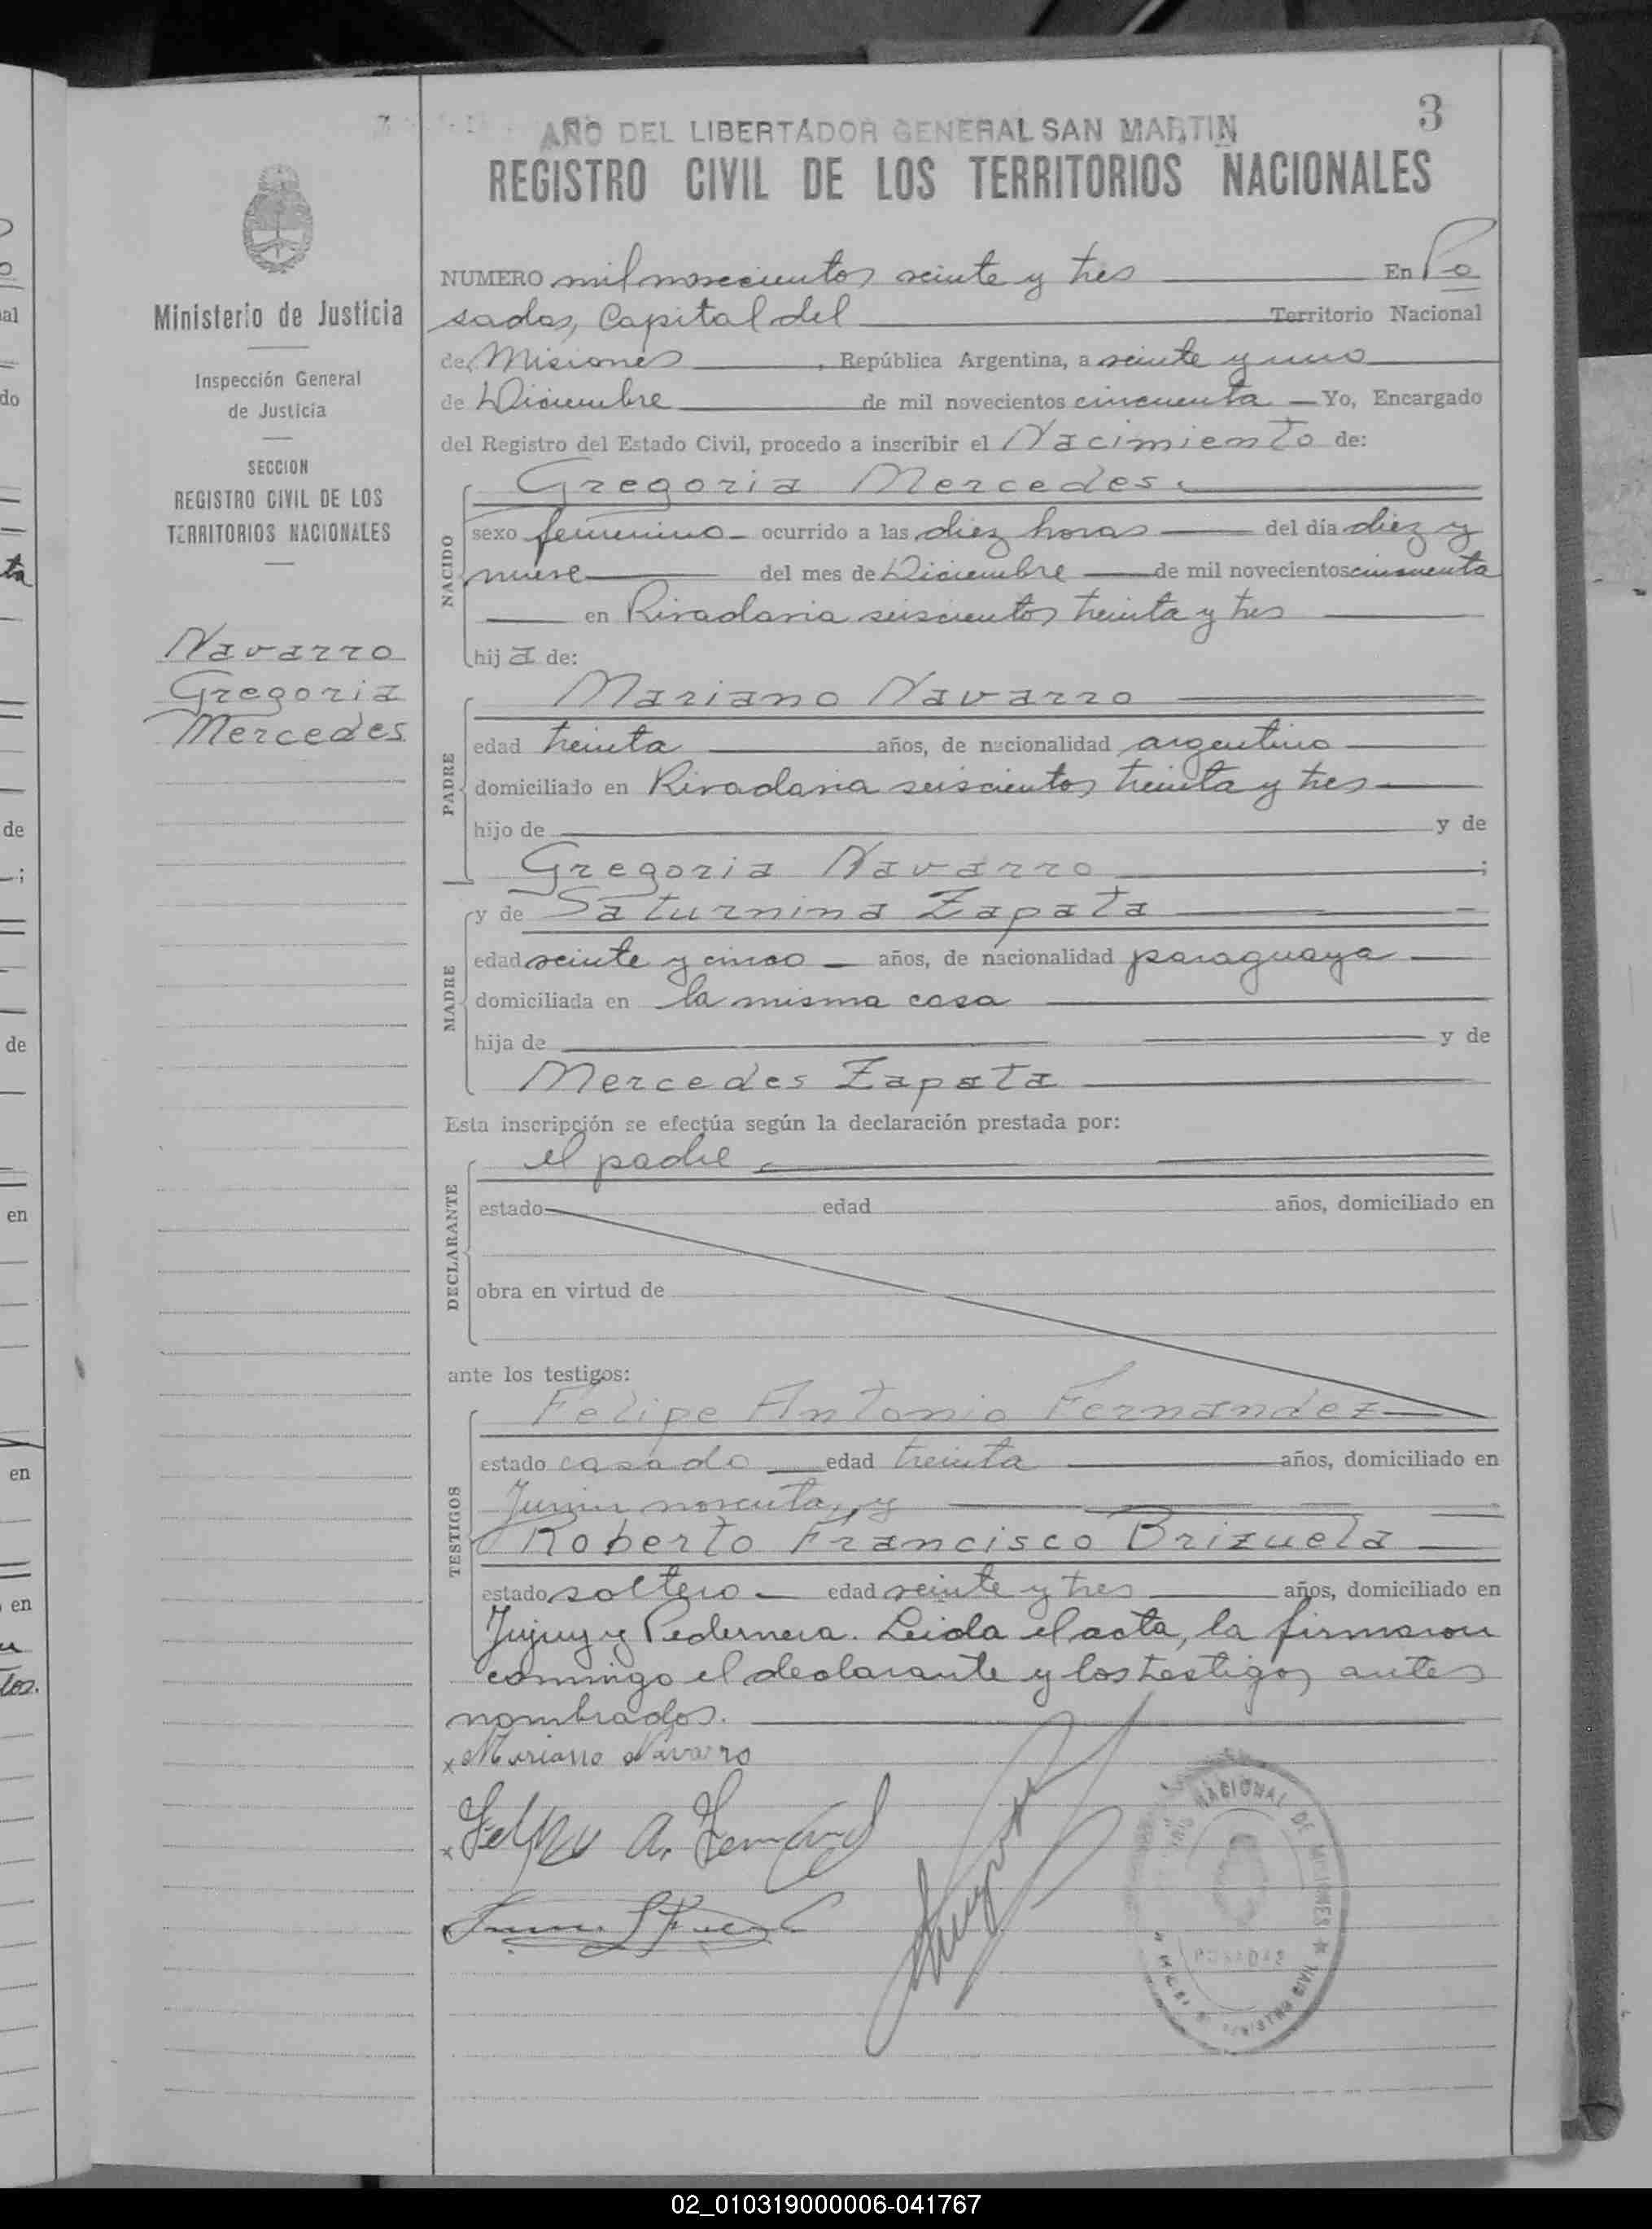 3
AÑO DEL LIBERTADOR GENERAL SAN MARTIN
REGISTRO CIVIL DE LOS TERRITORIOS NACIONALES
Ministerio de Justicia
Inspección General
de Justicia
SECCION
REGISTRO CIVIL DE LOS
TERRITORIOS NACIONALES
Navarro
Gregoria
Mercedes
NUMERO mil novecientos veinte y tres En Po
sadas, Capital del Territorio Nacional
de Misiones, República Argentina, a veinte y uno
de Diciembre de mil novecientos cincuenta Yo, Encargado
del Registro del Estado Civil, procedo a inscribir el Nacimiento de:
NACIDO
Gregoria Mercedes.
sexo femenino ocurrido a las diez horas del día diez y
nueve del mes de Diciembre de mil novecientos cincuenta
en Rivadavia seiscientos treinta y tres
hij a de:
PADRE
Mariano Navarro
edad treinta años, de nacionalidad argentino
domiciliado en Rivadavia seiscientos treinta y tres
hijo de y de
Gregoria Navarro ;
MADRE
y de Saturnina Zapata
edad veinte y cinco años, de nacionalidad paraguaya
domiciliada en la misma casa
hija de y de
Mercedes Zapata
Esta inscripción se efectúa según la declaración prestada por:
DECLARANTE
el padre
estado edad años, domiciliado en
obra en virtud de
ante los testigos:
TESTIGOS
Felipe Antonio Fernandez
estado casado edad treinta años, domiciliado en
Junin noventa, y
Roberto Francisco Brizuela
estado soltero edad veinte y tres años, domiciliado en
Jujuy y Pedernera. Leida el acta, la firmaron
conmigo el declarante y los testigos antes
nombrados.
x Mariano Navarro
x Felipe A. Fernand
NACIONAL DE MISIONES
POSADAS
02_010319000006-041767